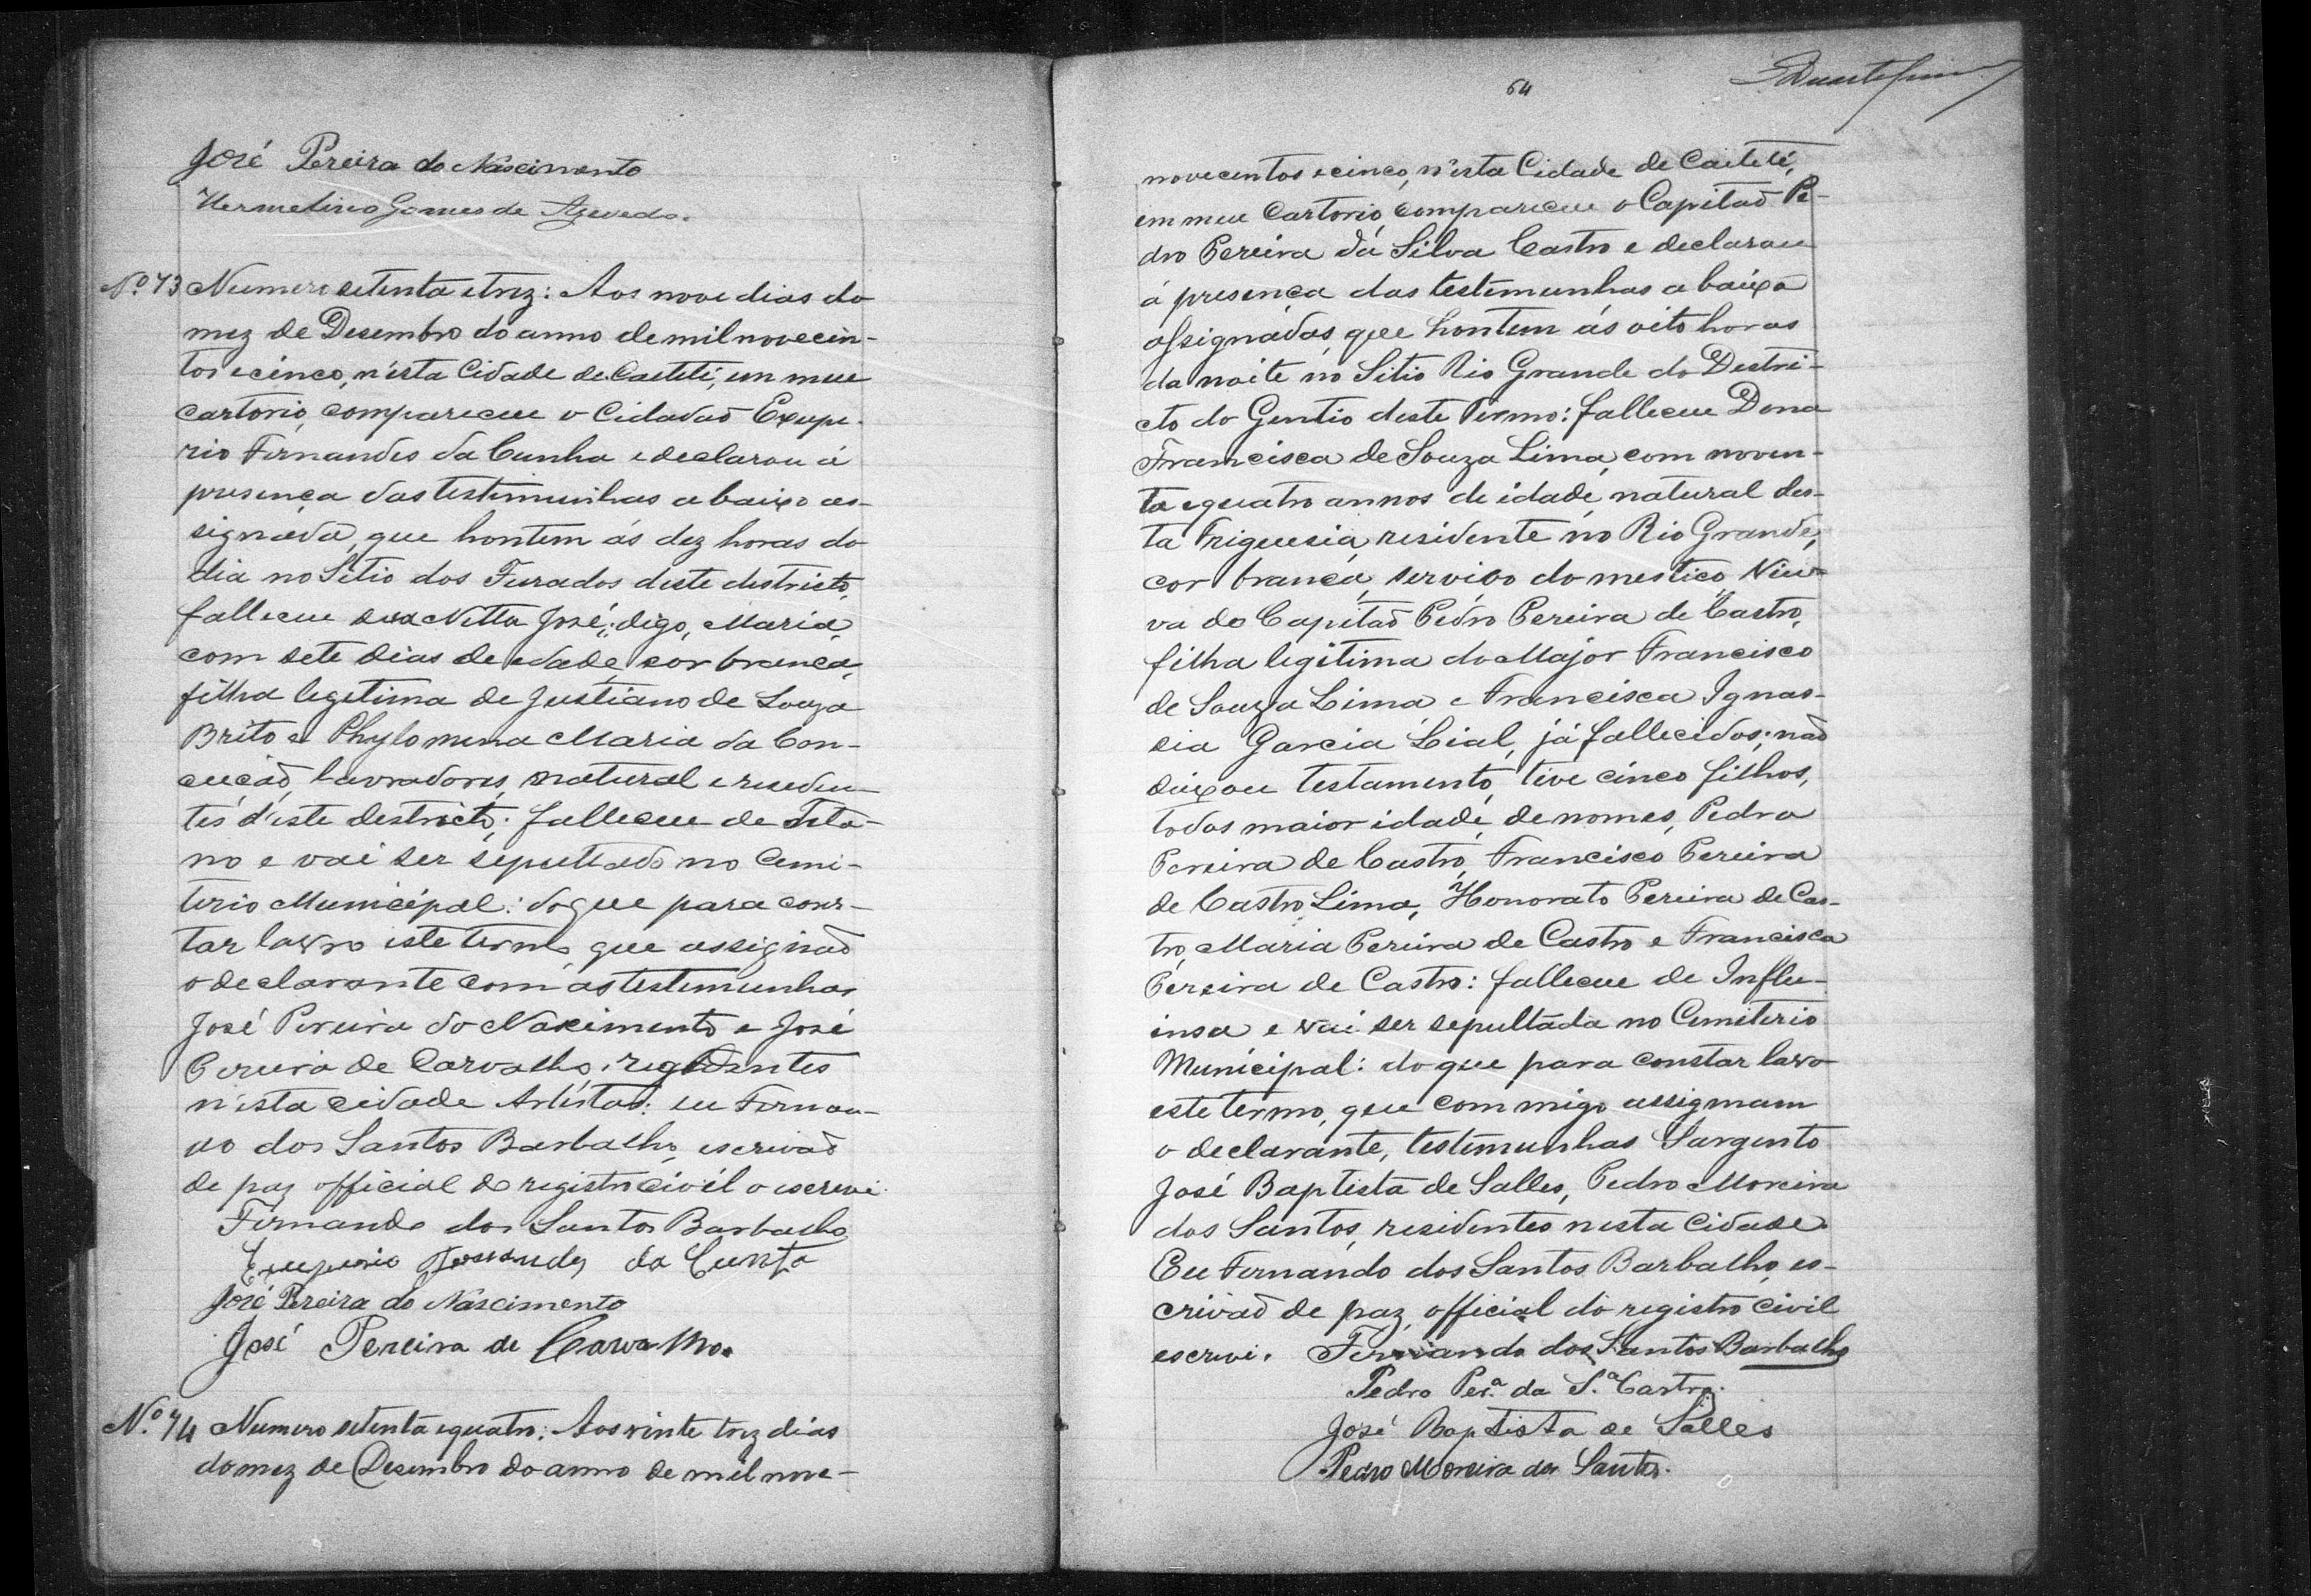 José Pereira do Nascimento
Hermelino Gomes de Azevedo.
Nº 73 Numero setenta e trez: Aos nove dias do
mez de Desembro do anno de mil novecen-
tos e cinco, n'esta Cidade de Caeteté, em meu
cartorio, compareceu o Cidadaõ Exupe-
rio Fernandes da Cunha e declarou á
presença das testemunhas abaixo as-
signada, que hontem ás dez horas do
dia no Sitio dos Furados deste districto,
falleceu sua Netta José, digo, Maria,
com sete dias de edade, cor branca,
filha legetima de Justiano de Souza
Brito e Phylomena Maria da Con-
ceiçaõ, lavradores, natural e residen-
tes d'este destricto; falleceu de Teta-
no e vai ser sepultado no Cemi-
terio Municipal: do que para cons-
tar lavro este termo, que assignaõ
o declarante com as testemunhas
José Pereira do Nascimento e José
Pereira de Carvalho, residentes
n'esta cidade Artistas: eu Fernan-
do dos Santos Barbalho, escrivaõ
de paz official do registro civil o escrevi.
Fernando dos Santos Barbalho
Exuperio Fernandes da Cunha
José Pereira do Nascimento
José Pereira de Carvalho.
Nº 74 Numero setenta e quatro: Aos vinte trez dias
do mez de Desembro do anno de mil nove-
64
novecentos e cinco, n'esta Cidade de Caeteté,
em meu Cartorio, compareceu o Capitaõ Pe-
dro Pereira da Silva Castro e declarou
á presença das testemunhas abaixo
assignadas, que hontem ás oito horas
da noite no Sitio Rio Grande do Destri-
cto do Gentio deste Termo: falleceu Dona
Francisca de Souza Lima, com noven-
ta e quatro annos de idade, natural des-
ta Friguesia, residente no Rio Grande,
cor branca, serviço domestico, Viu-
va do Capitaõ Pedro Pereira de Castro,
filha legitima do Major Francisco
de Souza Lima e Francisca Ignas-
cia Garcia Lial, já fallecidos; naõ
deixou testamento, tive cinco filhos,
todos maior idade, de nomes, Pedro
Pereira de Castro, Francisco Pereira
de Castro Lima, Honorato Pereira de Cas-
tro, Maria Pereira de Castro e Francisca
Pereira de Castro: falleceu de Influ-
insa e vai ser sepultada no Cemiterio
Municipal: do que para constar lavro
este termo, que commigo assignam
o declarante, testemunhas Sargento
José Baptista de Salles, Pedro Moreira
dos Santos, residentes nesta Cidade.
Eu Fernando dos Santos Barbalho, es-
crivaõ de paz, official do registro civil
escrevi. Fernando dos Santos Barbalho
Pedro Per.ª da S.ª Castro.
José Baptista de Salles
Pedro Moreira dos Santos.